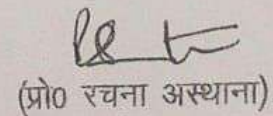 (प्रो0 रचना अस्थाना)